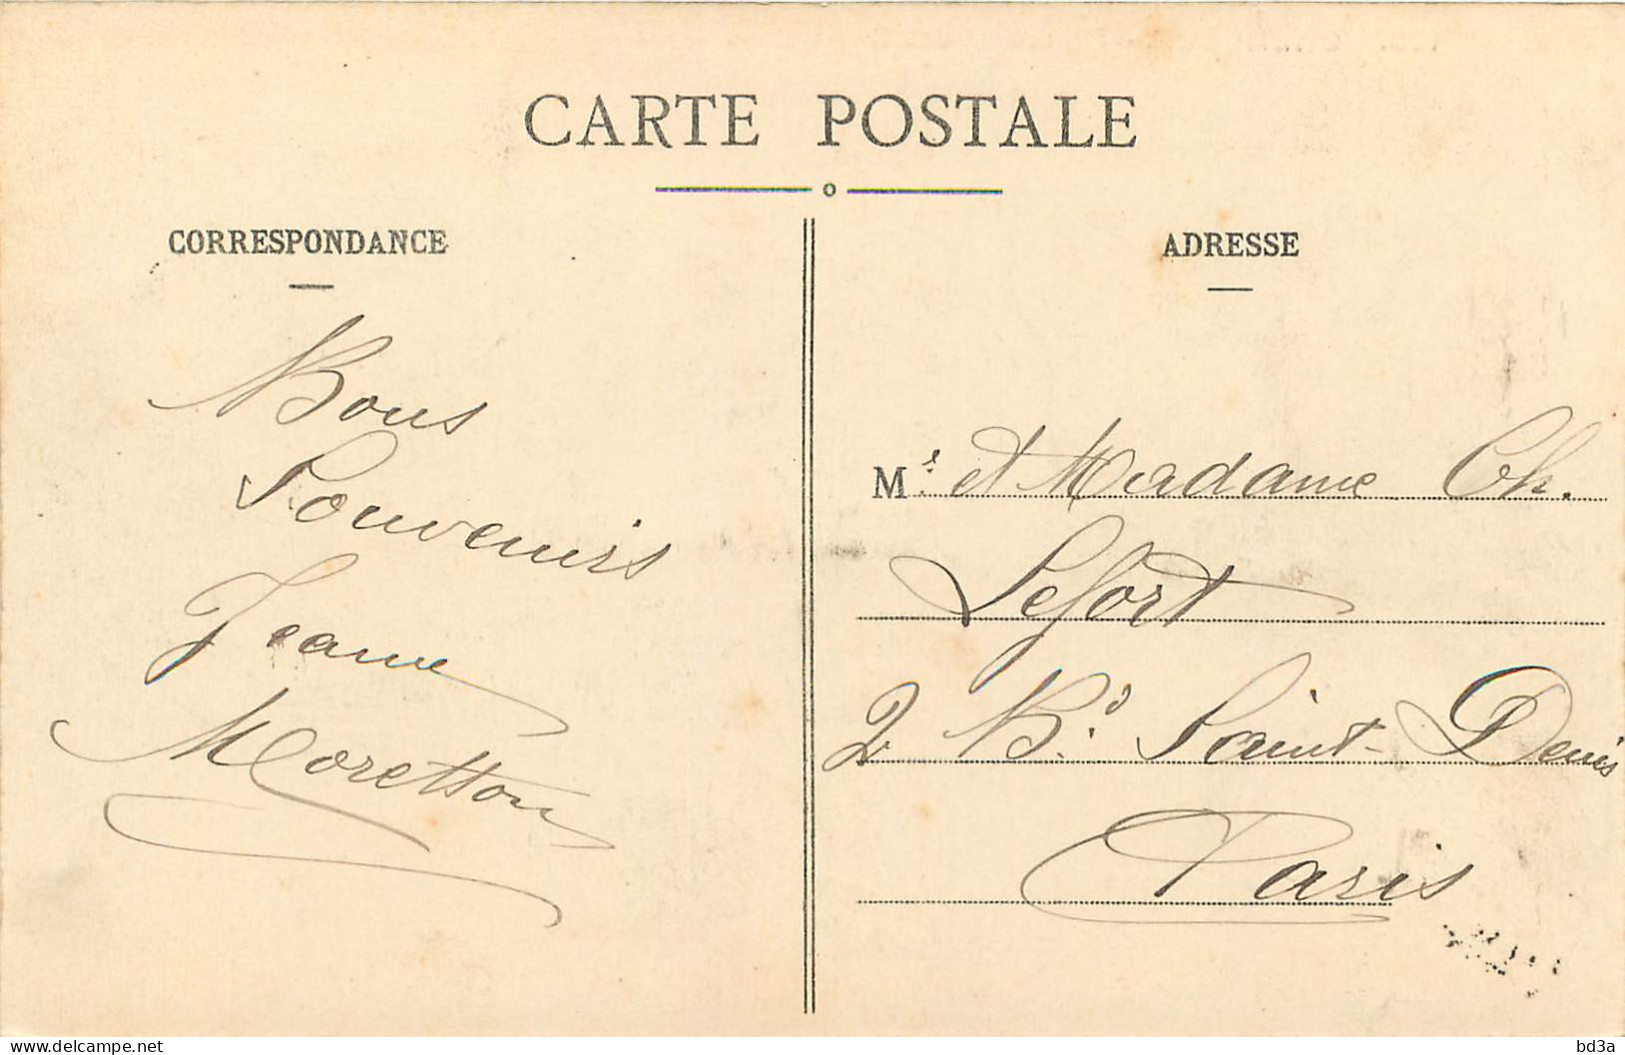 CARTE POSTALE
CORRESPONDANCE
Bons
Souvenirs
Jeanne
Moretton
ADRESSE
Mr. et Madame Ch.
Lefort
2 Bd. Saint-Denis
Paris
www.delcampe.net
bd3a